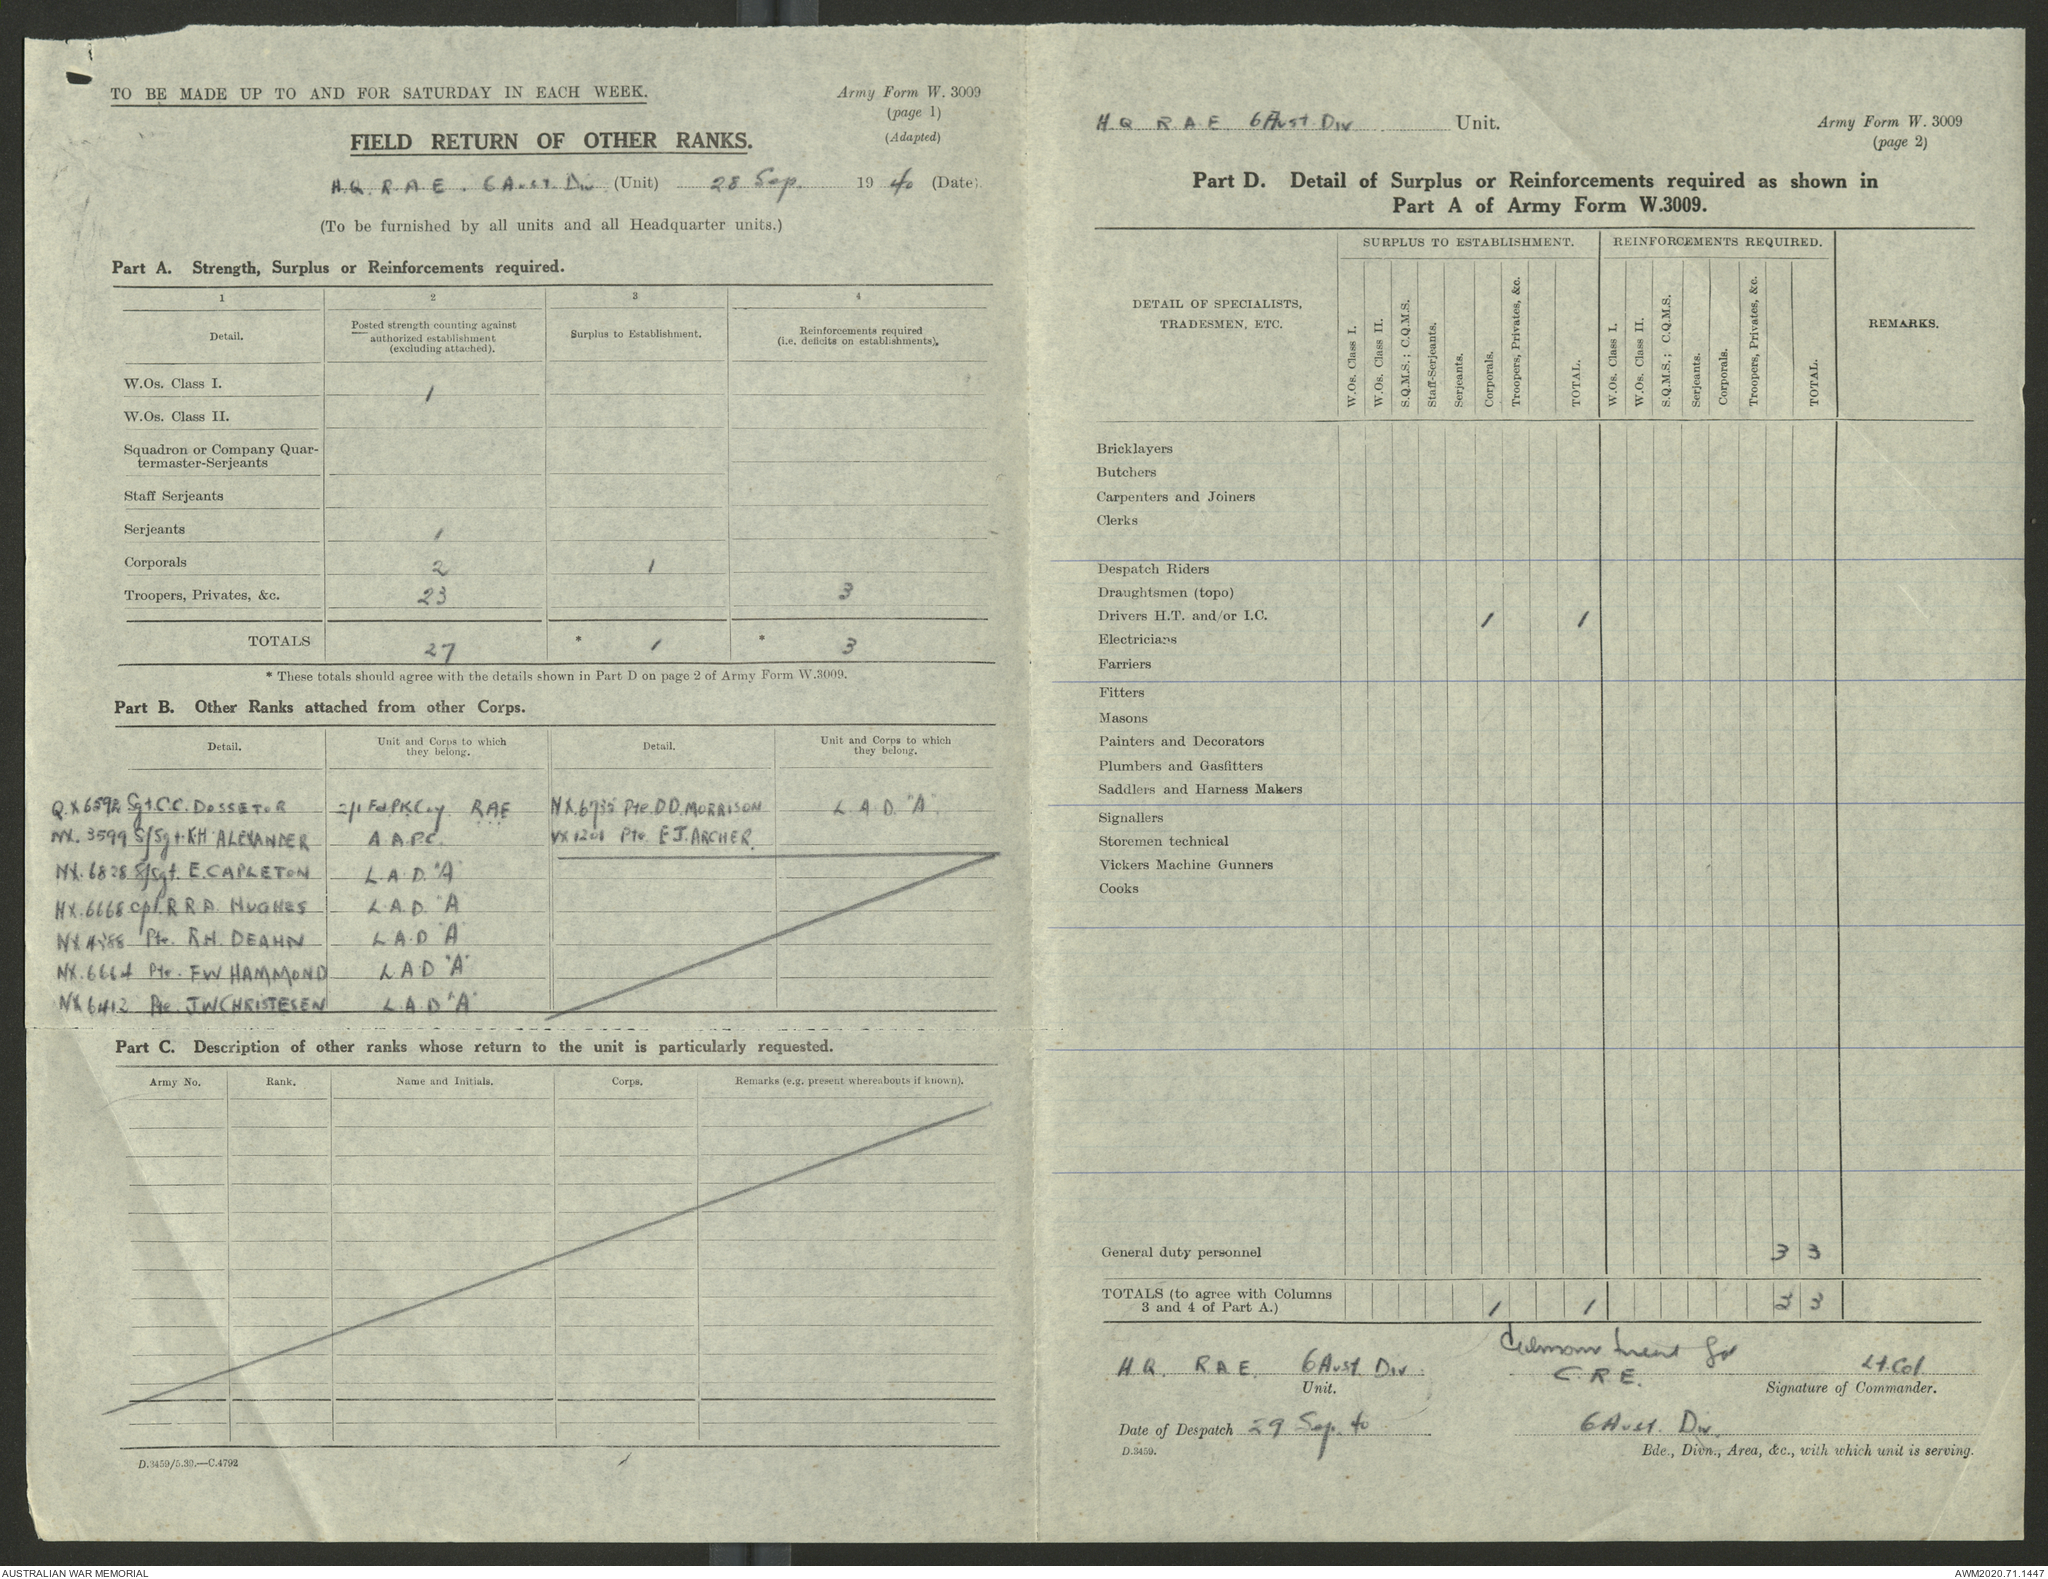 TO BE MADE UP TO AND FOR SATURDAY IN EACH WEEK.
Army Form W. 3009
(page 1)
(Adapted)
FIELD RETURN OF OTHER RANKS.
H.Q. R A E. 6 Aust. Div (Unit) 28 Sep. 19 40 (Date)
(To be furnished by all units and all Headquarter units.)
Part A. Strength, Surplus or Reinforcements required.
1 2 3 4
Detail. Posted strength counting against authorized establishment (excluding attached). Surplus to Establishment. Reinforcements required (i.e. deficits on establishments).
W.Os. Class I. 1
W.Os. Class II.
Squadron or Company Quar-
termaster-Serjeants
Staff Serjeants
Serjeants 1
Corporals 2 1
Troopers, Privates, &c. 23 3
TOTALS 27 * 1 * 3
* These totals should agree with the details shown in Part D on page 2 of Army Form W.3009.
Part B. Other Ranks attached from other Corps.
Detail. Unit and Corps to which they belong. Detail. Unit and Corps to which they belong.
QX6592 Sgt. C.C. DOSSETOR 2/1 Fd Pk Coy RAE NX.6735 Pte. D.D. MORRISON L.A.D. "A"
NX. 3599 S/Sgt. KH ALEXANDER A.A.P.C. VX1201 Pte. E.J. ARCHER.
NX.6828 S/Sgt. E. CAPLETON L.A.D. "A"
NX.6668 Cpl. R R A. HUGHES L.A.D. "A
NX4388 Pte. R.H. DEAHN L.A.D "A"
NX.6664 Pte. F W HAMMOND L A D "A"
NX6412 Pte. J W CHRISTESEN L.A.D "A"
Part C. Description of other ranks whose return to the unit is particularly requested.
Army No. Rank. Name and Initials. Corps. Remarks (e.g. present whereabouts if known).
D.3459/5.39.—C.4792
H.Q R.A.E. 6 Aust. Div Unit.
Army Form W. 3009
(page 2)
Part D. Detail of Surplus or Reinforcements required as shown in
Part A of Army Form W.3009.
DETAIL OF SPECIALISTS, TRADESMEN, ETC. SURPLUS TO ESTABLISHMENT. REINFORCEMENTS REQUIRED. REMARKS.
W.Os. Class I. W.Os. Class II. S.Q.M.S.; C.Q.M.S. Staff-Serjeants. Serjeants. Corporals. Troopers, Privates, &c. TOTAL. W.Os. Class I. W.Os. Class II. S.Q.M.S.; C.Q.M.S. Serjeants. Corporals. Troopers, Privates, &c. TOTAL.
Bricklayers
Butchers
Carpenters and Joiners
Clerks
Despatch Riders
Draughtsmen (topo)
Drivers H.T. and/or I.C. 1 1
Electricians
Farriers
Fitters
Masons
Painters and Decorators
Plumbers and Gasfitters
Saddlers and Harness Makers
Signallers
Storemen technical
Vickers Machine Gunners
Cooks
General duty personnel 3 3
TOTALS (to agree with Columns
3 and 4 of Part A.) 1 1 3 3
H.Q. R A E. 6 Aust. Div
Unit.
C.R.E. Lt. Col.
Signature of Commander.
Date of Despatch 29 Sep. 40
6 Aust. Div.
D.3459.
Bde., Divn., Area, &c., with which unit is serving.
AUSTRALIAN WAR MEMORIAL
AWM2020.71.1447